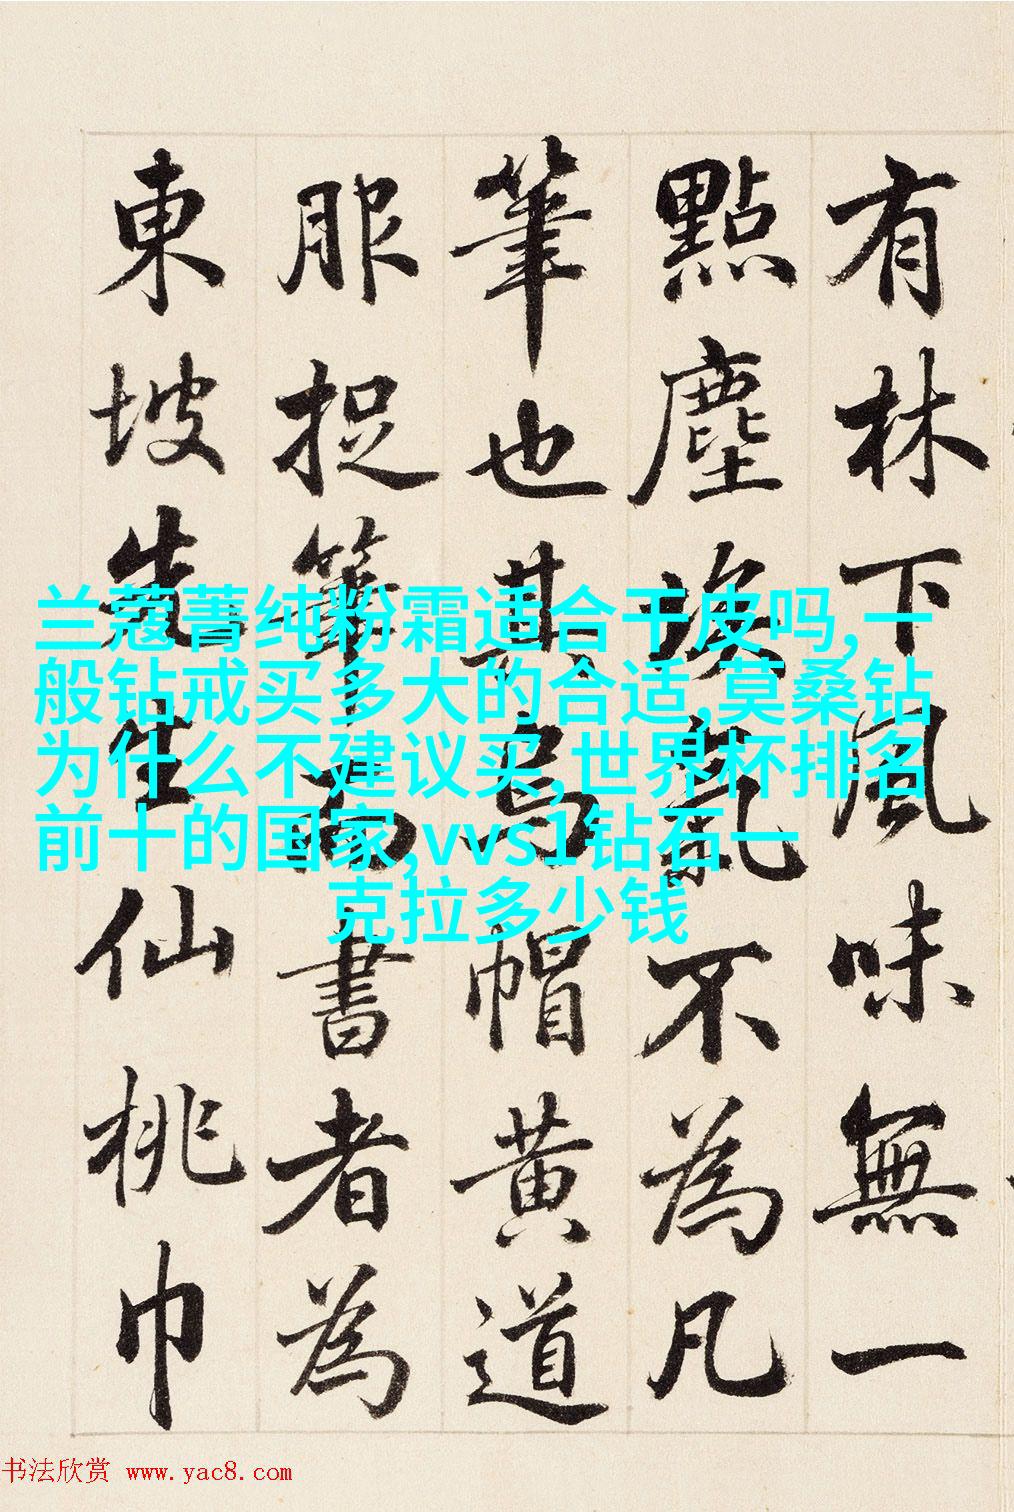 有林下風味無一
點塵埃氣不為凡
筆也其烏帽黃道
服捉筆而書者為
東坡先生仙桃巾
兰蔻菁纯粉霜适合干皮吗,一
般钻戒买多大的合适,莫桑钻
为什么不建议买,世界杯排名
前十的国家,vvs1钻石一
克拉多少钱
书法欣赏 www.yac8.com